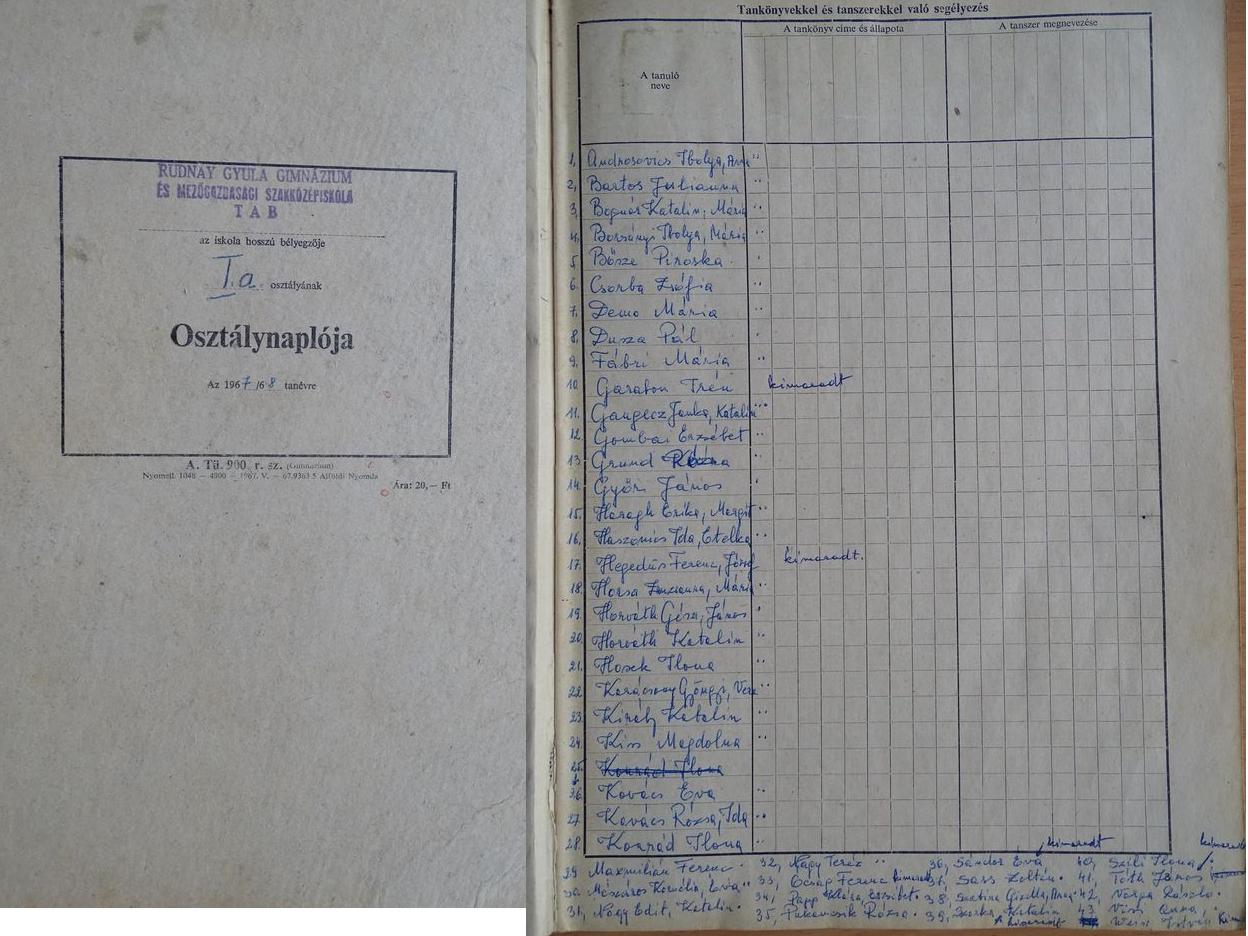 RUDNAY GYULA GIMNÁZIUM
ÉS MEZŐGAZDASÁGI SZAKKÖZÉPISKOLA
TAB
az iskola hosszú bélyegzője
I. a. osztályának
Osztálynaplója
Az 1967/68 tanévre
A. Tü. 900. r. sz. (Gimnázium)
Nyomell. 1048 — 4900 — 1967. V. — 67.9363-5 Alföldi Nyomda
Ára: 20,— Ft
Tankönyvekkel és tanszerekkel való segélyezés
A tanuló neve
A tankönyv címe és állapota
A tanszer megnevezése
1, Androsovics Ibolya, Anna
2, Bartos Julianna
3, Bognár Katalin, Mária
4, Borsányi Ibolya, Mária
5, Bősze Piroska
6, Csorba Zsófia
7, Demo Mária
8, Dusza Pál
9, Fábri Mária
10, Garabon Irén kimaradt
11, Gangecz Janka, Katalin
12, Gombai Erzsébet
13, Grund Rózsa
14, Győri János
15, Haragh Erika, Margit
16, Haszonics Ida, Etelka
17, Hegedüs Ferenc, József kimaradt.
18, Horsa Zsuzsanna, Mária
19, Horváth Géza, János
20, Horváth Katalin
21, Hosek Ilona
22, Karácsony Gyöngyi, Vera
23, Király Katalin
24, Kiss Magdolna
25, Konrád Ilona
26, Kovács Éva
27, Kovács Rózsa, Ida
28, Konrád Ilona
29, Maxmilián Ferenc 32, Nagy Teréz 36, Sándor Éva kimaradt 40, Szili Ilona
30, Mészáros Kornélia, Éva 33, Ferenc kimaradt 37, Sass Zoltán 41, Tóth János
31, Nagy Edit, Katalin 34, Papp Klára, Erzsébet 38, Gizella, Anna 42, Varga László
35, Rózsa 39, Katalin kimaradt 43, Anna